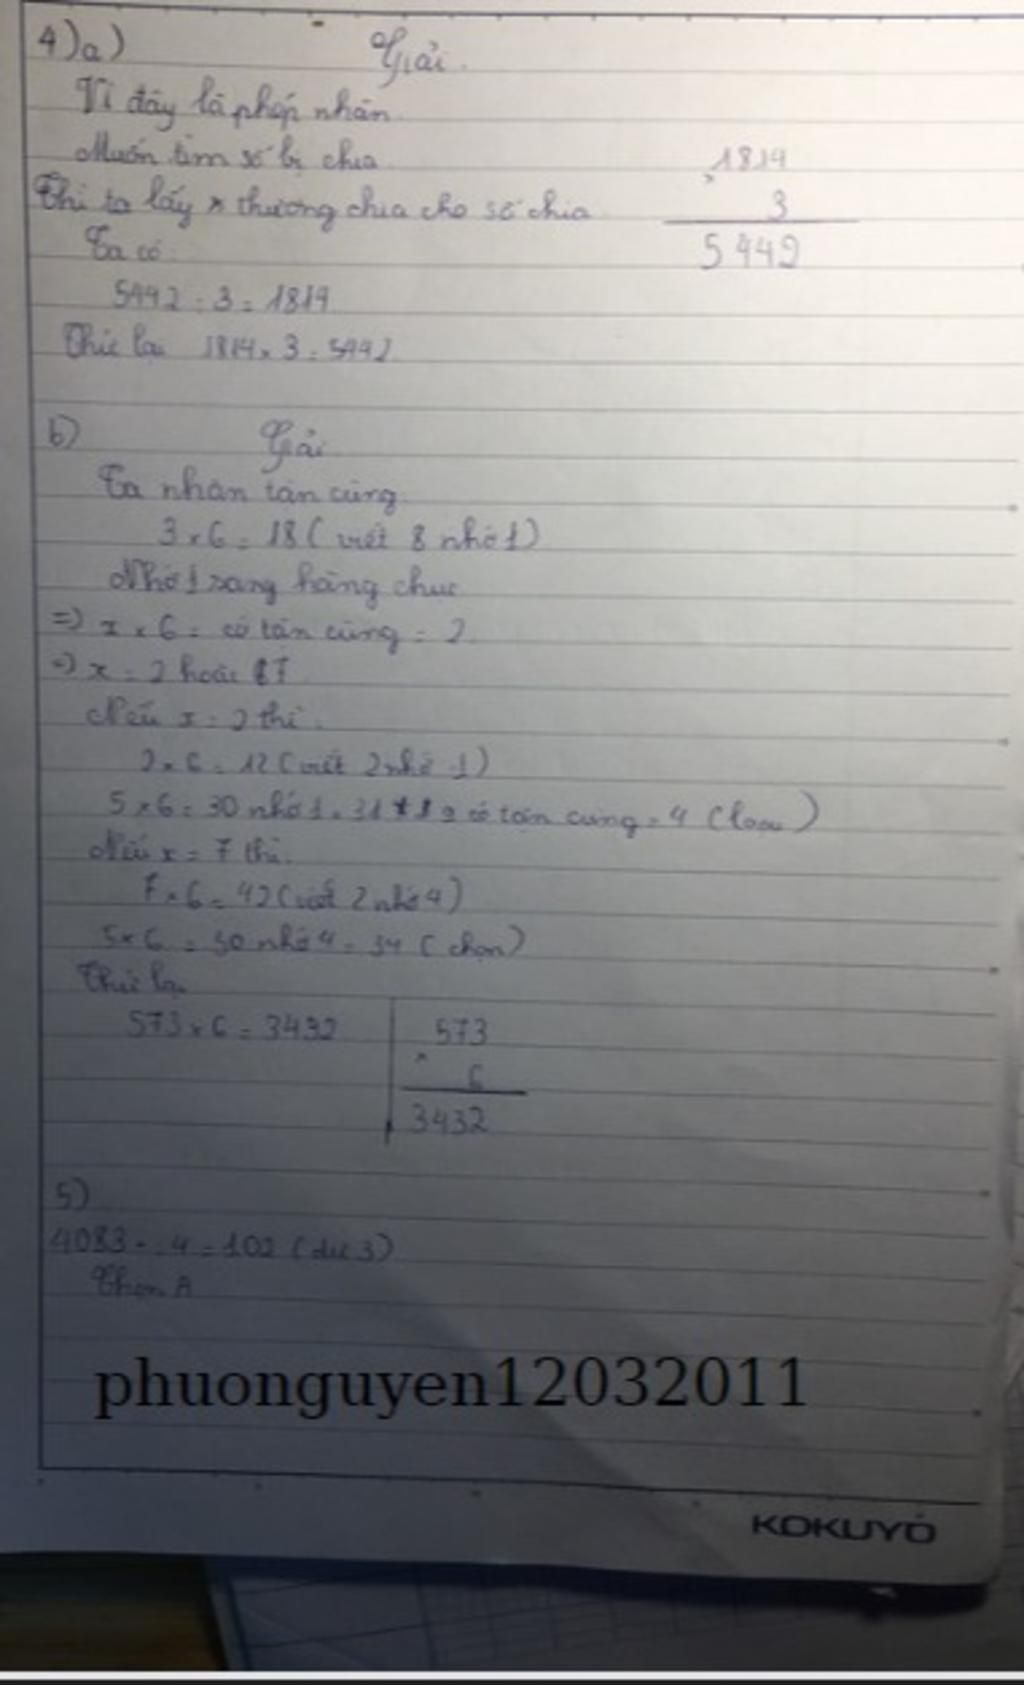 4)a) Giải.
Vì đây là phép nhân
Muốn tìm số bị chia
Thì ta lấy thương chia cho số chia
Ta có
5442 : 3 = 1814
Thử lại 1814 x 3 = 5442
1814
x
3
5442
b) Giải
Ta nhân tận cùng
3 x 6 = 18 ( viết 8 nhớ 1)
Nhớ 1 sang hàng chục
=) x x 6 = có tận cùng = 2
=) x = 2 hoặc 7
Nếu x = 2 thì
2 x 6 = 12 (viết 2 nhớ 1)
5 x 6 = 30 nhớ 1 = 31 có tận cùng = 4 (loại)
Nếu x = 7 thì
7 x 6 = 42 (viết 2 nhớ 4)
5 x 6 = 30 nhớ 4 = 34 (chọn)
Thử lại
573 x 6 = 3432
573
x
6
3432
5)
4083 : 4 = 102 (dư 3)
Chọn A
phuonguyen12032011
KOKUYO